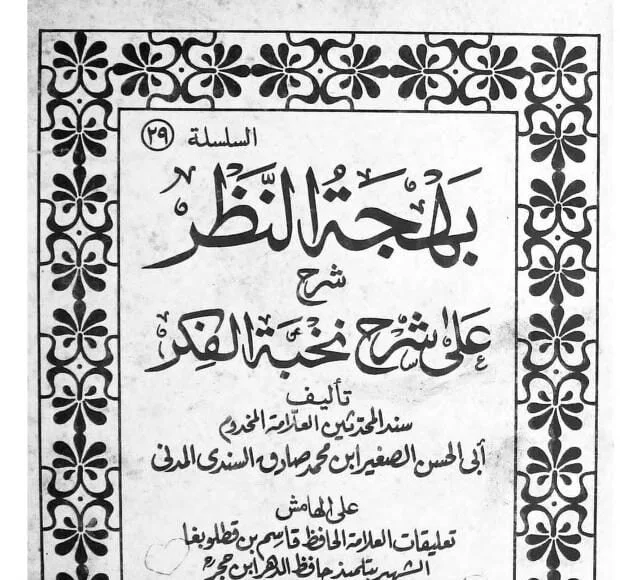 السلسلة ٢٩
بَهْجَةُ النَّظَر
شرح
عَلَى شَرْح نُخْبَةِ الفِكَر
تأليف
سند المحدثين العلامة المخدوم
أبي الحسن الصغير ابن محمد صادق السندى المدنى
على الهامش
تعليقات العلامة الحافظ قاسم بن قطلوبغا
الشهير بتلميذ حافظ الدهر ابن حجر